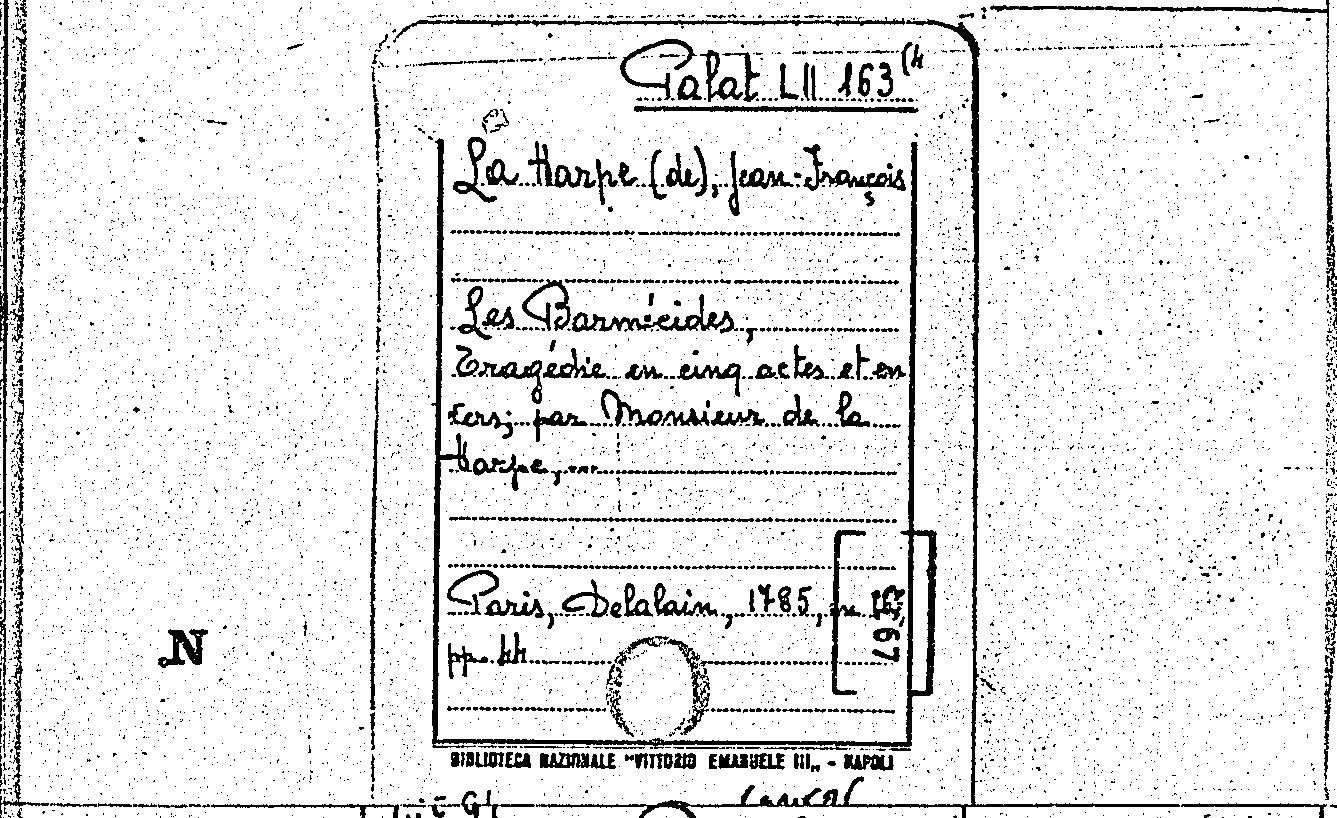 Palat LII 163 (4
La Harpe (de), Jean-François
Les Barmécides,
Tragédie en cinq actes et en
vers; par Monsieur de la
Harpe,...
Paris, Delalain, 1785, in
pp. 44
N
BIBLIOTECA NAZIONALE "VITTORIO EMANUELE III„ - NAPOLI